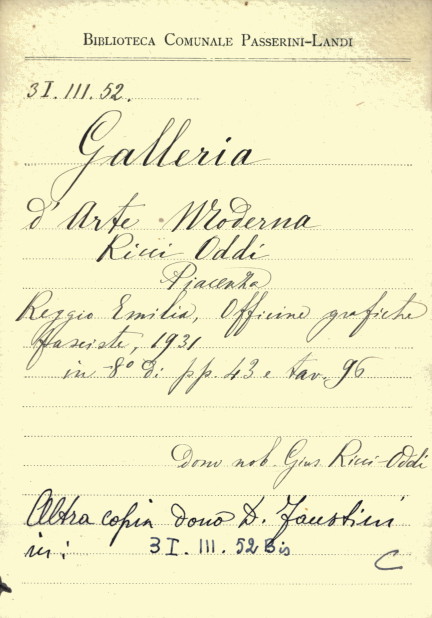 BIBLIOTECA COMUNALE PASSERINI-LANDI
3I.III.52.
Galleria
d'Arte Moderna
Ricci Oddi
Piacenza
Reggio Emilia, Officine grafiche
fasciste, 1931
in-8º di pp. 43 e tav. 96
Dono nob. Gius. Ricci-Oddi
Altra copia dono D. Faustini
in: 3I.III.52 Bis
C